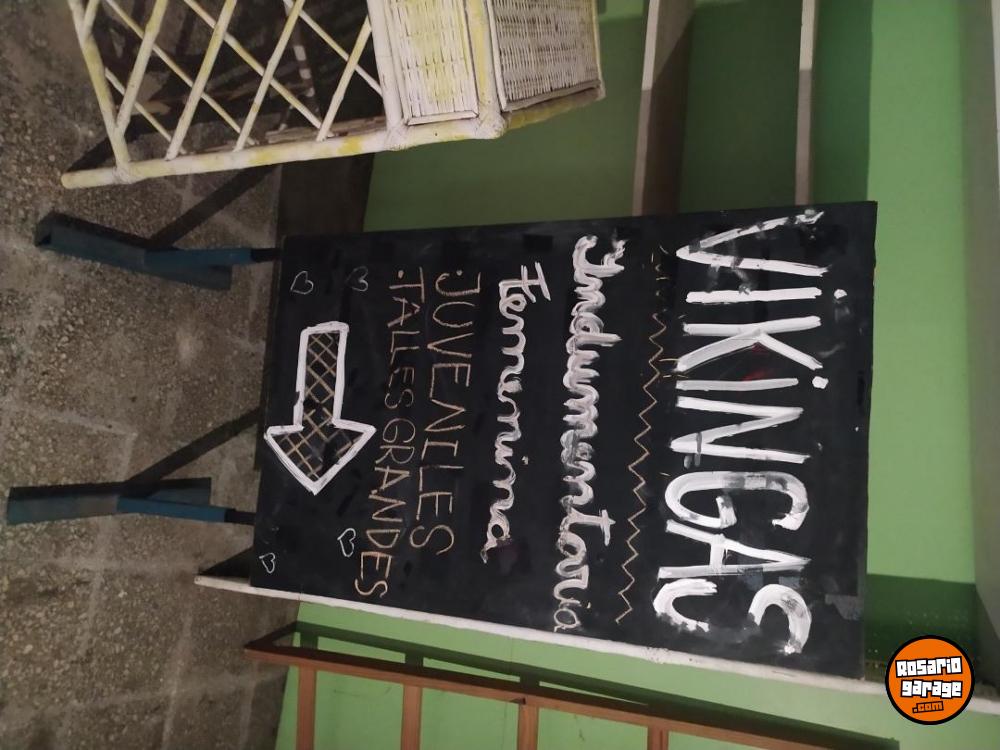 ViKiNGAS
Indumentaria
Femenina
·JUVENILES
·TALLES GRANDES
ROSARIO
garage
.com